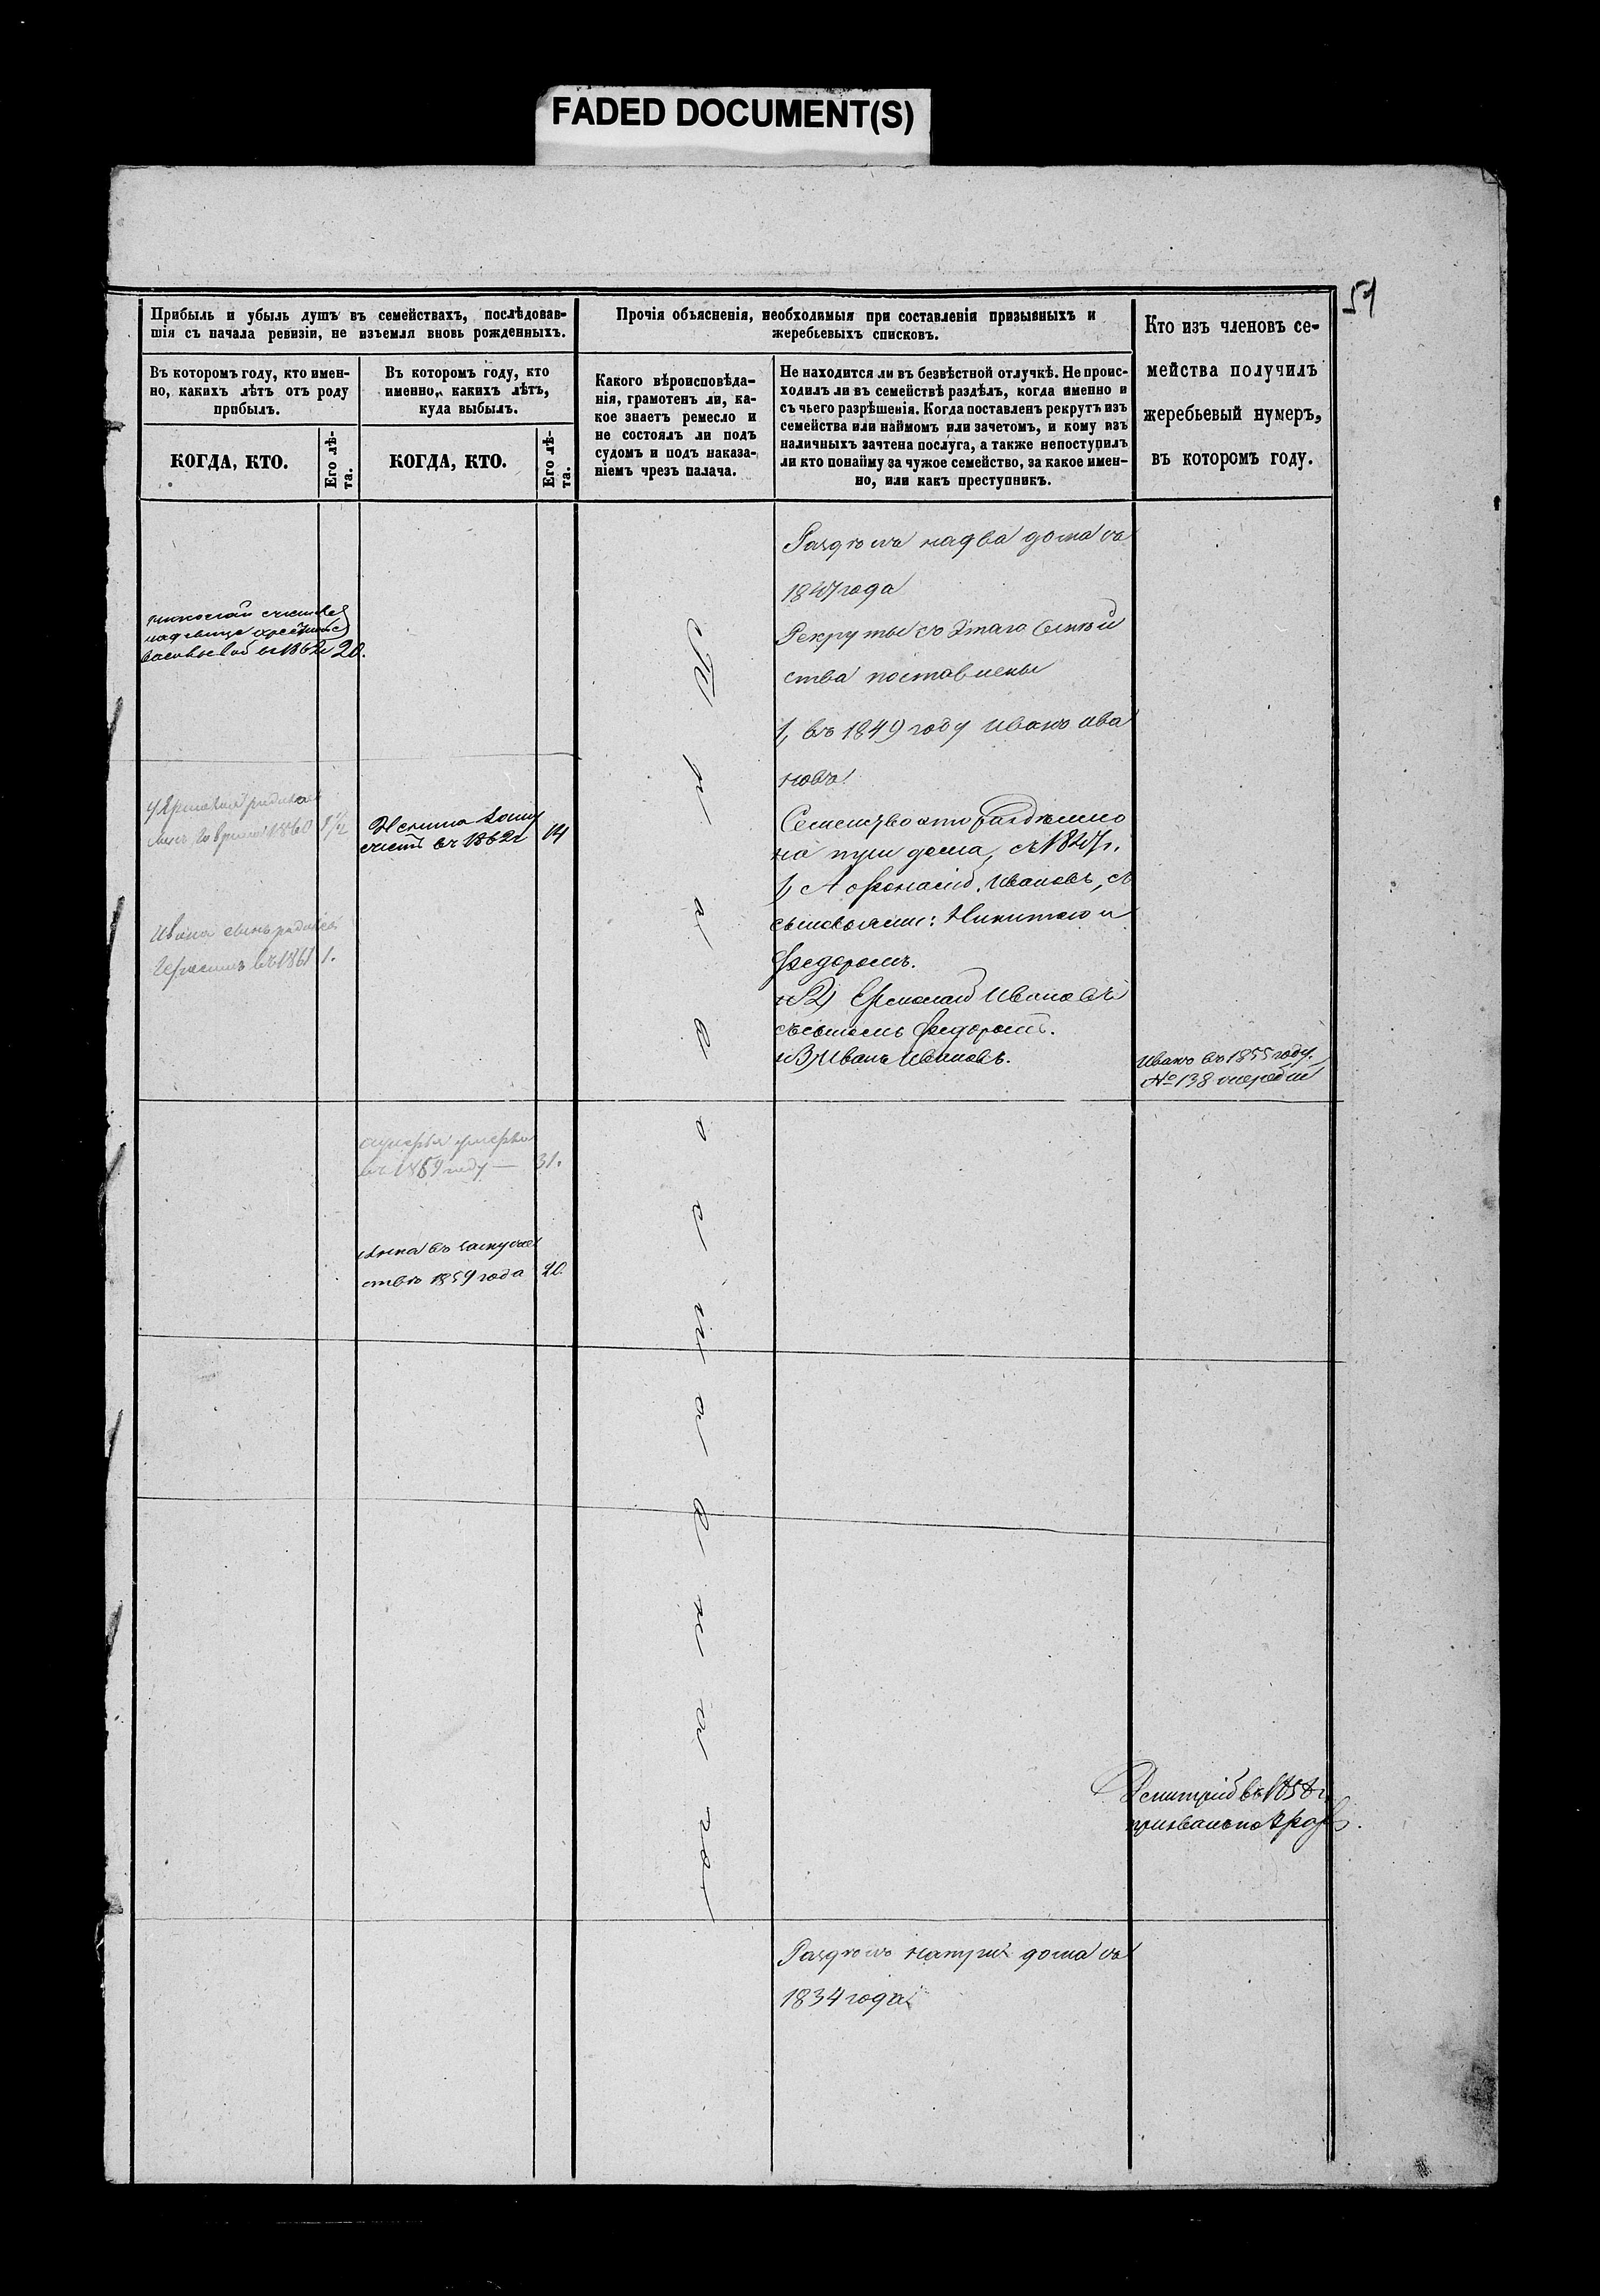 FADED DOCUMENT(S)
51
Прибыль и убыль душъ въ семействахъ, послѣдовав-
шія съ начала ревизіи, не изъемля вновь рожденныхъ.
Въ которомъ году, кто имен-
но, какихъ лѣтъ отъ роду
прибылъ.
КОГДА, КТО.
Его лѣ-
та.
Въ которомъ году, кто
именно, какихъ лѣтъ,
куда выбылъ.
КОГДА, КТО.
Его лѣ-
та.
Прочія объясненія, необходимыя при составленіи призывныхъ и
жеребьевыхъ списковъ.
Какого вѣроисповѣда-
нія, грамотенъ ли, ка-
кое знаетъ ремесло и
не состоялъ ли подъ
судомъ и подъ наказа-
ніемъ чрезъ палача.
Не находится ли въ безвѣстной отлучкѣ. Не проис-
ходилъ ли въ семействѣ раздѣлъ, когда именно и
съ чьего разрѣшенія. Когда поставленъ рекрутъ изъ
семейства или наймомъ или зачетомъ, и кому изъ
наличныхъ зачтена послуга, а также непоступилъ
ли кто понайму за чужое семейство, за какое имен-
но, или какъ преступникъ.
Кто изъ членовъ се-
мейства получилъ
жеребьевый нумеръ,
въ которомъ году.
въ 1862 20.
1860
Ивана сынъ
Герасимъ въ 1861 1.
въ 1862 14
умерла
въ 1859 году — 31.
Анна въ замуже
ствѣ 1859 года 20.
Православнаго
Раздѣлъ на два дома съ
1847 года
Рекруты съ этаго семѣй
ства поставлены
1, въ 1849 году Иванъ Ива
новъ
Семейство это раздѣлено
на три дома, съ 1847 г.
1, Афонасій Ивановъ, съ
сыновьями: Никитою и
Федоромъ.
и 2) Ермолай Ивановъ
съ сыномъ Федоромъ.
и 3) Иванъ Ивановъ.
Иванъ въ 1855 году.
№ 138
Дмитрій въ 1858 г.
Раздѣлъ на три дома съ
1834 года